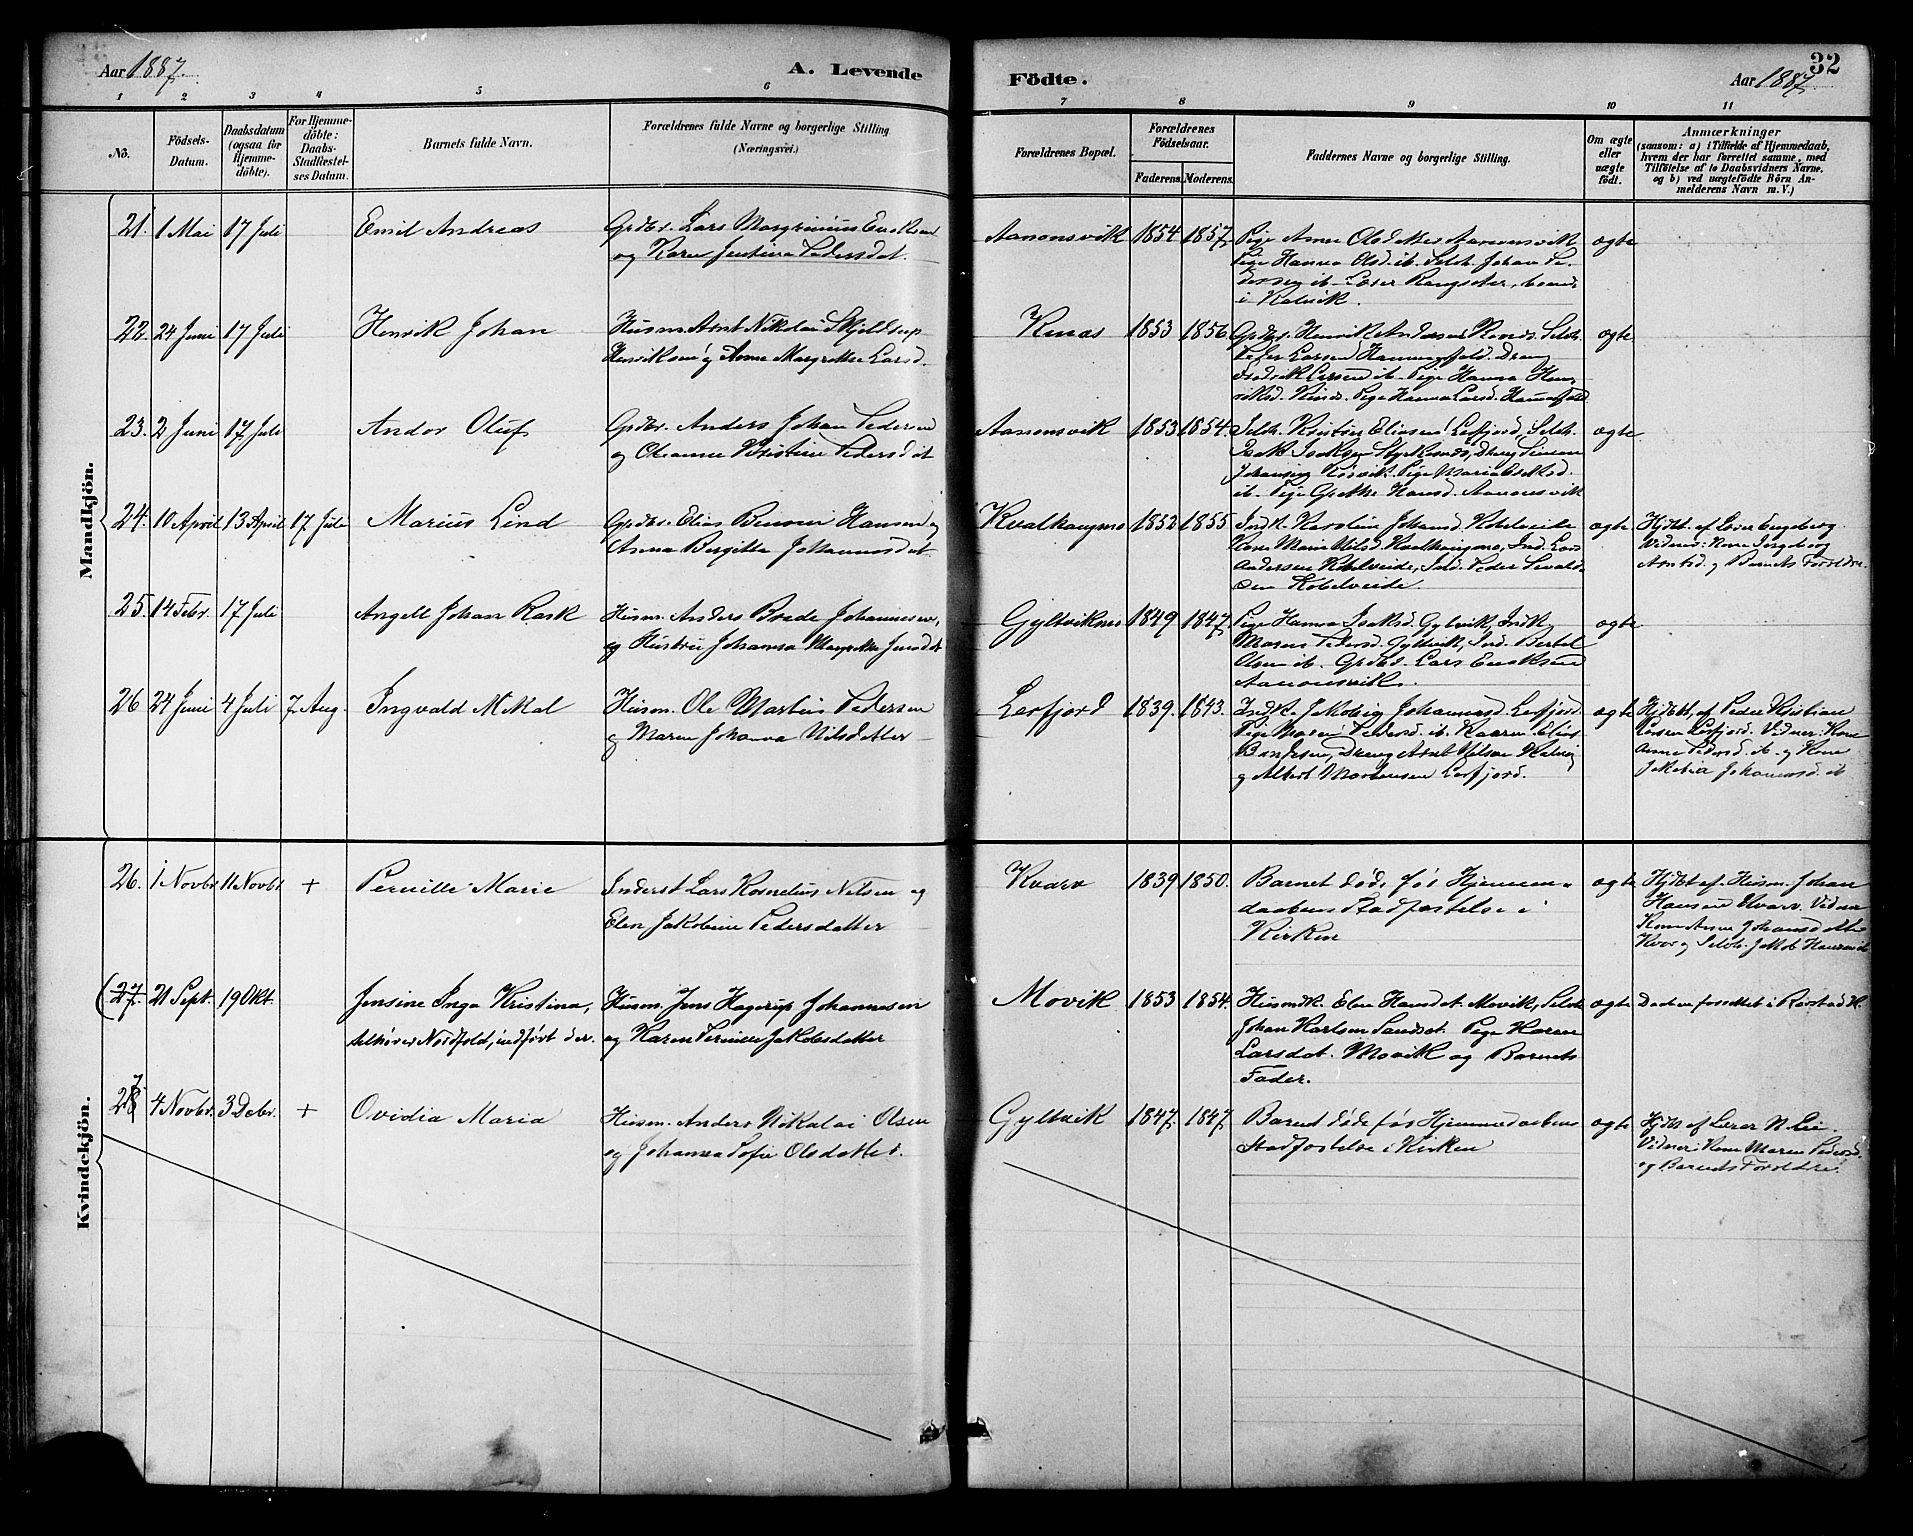 Aar 1887.
A. Levende
Födte.
Aar 1887.
32
1 2 3 4 5 6 7 8 9 10 11
No.
Födsels-
Datum.
Daabsdatum
(ogsaa for
Hjemme-
döbte).
For Hjemme-
döbte:
Daabs-
Stadfæstel-
ses Datum.
Barnets fulde Navn.
Forældrenes fulde Navne og borgerlige Stilling.
(Næringsvei.)
Forældrenes Bopæl.
Forældrenes
Födselsaar.
Faderens. Moderens.
Faddernes Navne og borgerlige Stilling.
Om ægte
eller
uægte
födt.
Anmærkninger
(saasom: a) i Tilfælde af Hjemmedaab,
hvem der har forrettet samme, med
Tilföielse af to Daabsvidners Navne,
og b) ved uægtefödte Börn An-
melderens Navn m. V.)
Mandkjön.
21. 1 Mai 17 Juli Emil Andreas
Grdbr. Lars Eriksen
og Karen Jentine Pedersdat.
Aanonsvik 1854 1857.
Pige Anne Olsdatter Aanonsvik
Pige Hanna Olsd. ib. Selvh. Johan Pe-
dersen ib. Lærer Rangsæter, boende
i Kalvik.
ægte
22. 24 Juni 17 Juli Henrik Johan
Husm. Arnt Nikolai Skjeldsup
Henriksen og Anne Margrethe Larsd.
Kines 1853 1856
Grdbr. Henrik Andersen Kines. Selvh.
Peder Larsen Dreng
Fredrik Larsen ib. Pige Hanna Hen-
riksd. Kines. Pige Hanna Larsd.
ægte
23. 2 Juni 17 Juli Andor Oluf
Grdbr. Anders Johan Pedersen
og Oleanna Kristine Pedersdat
Aanonsvik 1853 1854.
Selvh. Eliasen Lerfjord, Selvh.
Isak Isaksen Dreng Simon
Johansen Pige Maria
ib. Pige Grethe Hansd. Aanonsvik
ægte
24. 10 April 13 April 17 Juli Marius Lind
Grdbr. Elias Benoni Hansen og
Anna Birgitte Johannesdat.
Kvalhaugmo 1852 1855.
Indk. Karoline Johansd. Kobelveide
Kone Marie Nilsd. Kvalhaugmo, Ind. Lars
Andersen Kobelveide, Ind. Peder Sivald-
sen Kobelveide.
ægte
Hjdbt. af Lærer Engeberg
Vidner: Kone Ingeborg
Arntsd. og Barnets Forældre.
25. 14 Febr. 17 Juli Angell Johan Rask
Husm. Anders Brede Johannesen,
og Hustru Johanna Margrethe Jensdat
Gyltviknes 1849 1847.
Pige Hanna Isaksd. Gyltvik, Indk.
Maren Pedersd. Gyltvik, Ind. Bertel
Olsen ib. Grdbr. Lars Eriksen
Aanonsvik.
ægte
26 24 Juni 4 Juli 7 Aug. Ingvald Mikal
Husm. Ole Martus Pedersen
og Maren Johanna Nilsdatter
Lerfjord 1839. 1843.
Indk. Jakobig Johannesd. Lerfjord.
Pige Maren Pedersd. ib. Elias
Dreng Arnt Nilsen Kalvig
og Albert Mortensen Lerfjord.
ægte
Hjdbt. af Peder Kristian
Larsen Lerfjord. Vidner: Kone
Anne Pedersd. ib. og Kone
Jakobia Johannesd. ib
Kvindekjön.
26. 1 Novbr 11 Novbr + Pernille Marie
Inderst Lars Kornelius Nilsen og
Elen Jakobine Pedersdatter
Kvarv 1839 1850.
Barnet döde för Hjemme-
daabens Stadfæstelse i
Kirken
ægte
Hjdbt af. Husm. Johan
Hansen Kvarv. Vidner
Kone Anne Johansdatter
Kvarv og Selvh. Jakob
(27. 21 Sept. 19 Okt. Jensine Inga Kristina,
tilhörer Nordfold, indfört der.
Husm. Jens Hagerup Johannesen
og Karen Jakobsdatter
Movik 1853 1854.
Husmdk. Elen Hansdat. Movik, Selvh.
Johan Karlsen Sandset. Pige Karen
Larsdat. Movik og Barnets
Fader.
ægte
Daaben forrettet i Rørstad K.
7
28 4 Novbr. 3 Debr. + Ovidia Maria
Husm. Anders Nikolai Olsen
og Johanna Sofie Olsdatter.
Gyltvik 1847. 1847.
Barnet döde för Hjemmedaabens
Stadfæstelse i Kirken
ægte
Hjdbt af Lærer N.
Vidner: Kone Maren Pedersd.
og Barnets Forældre.